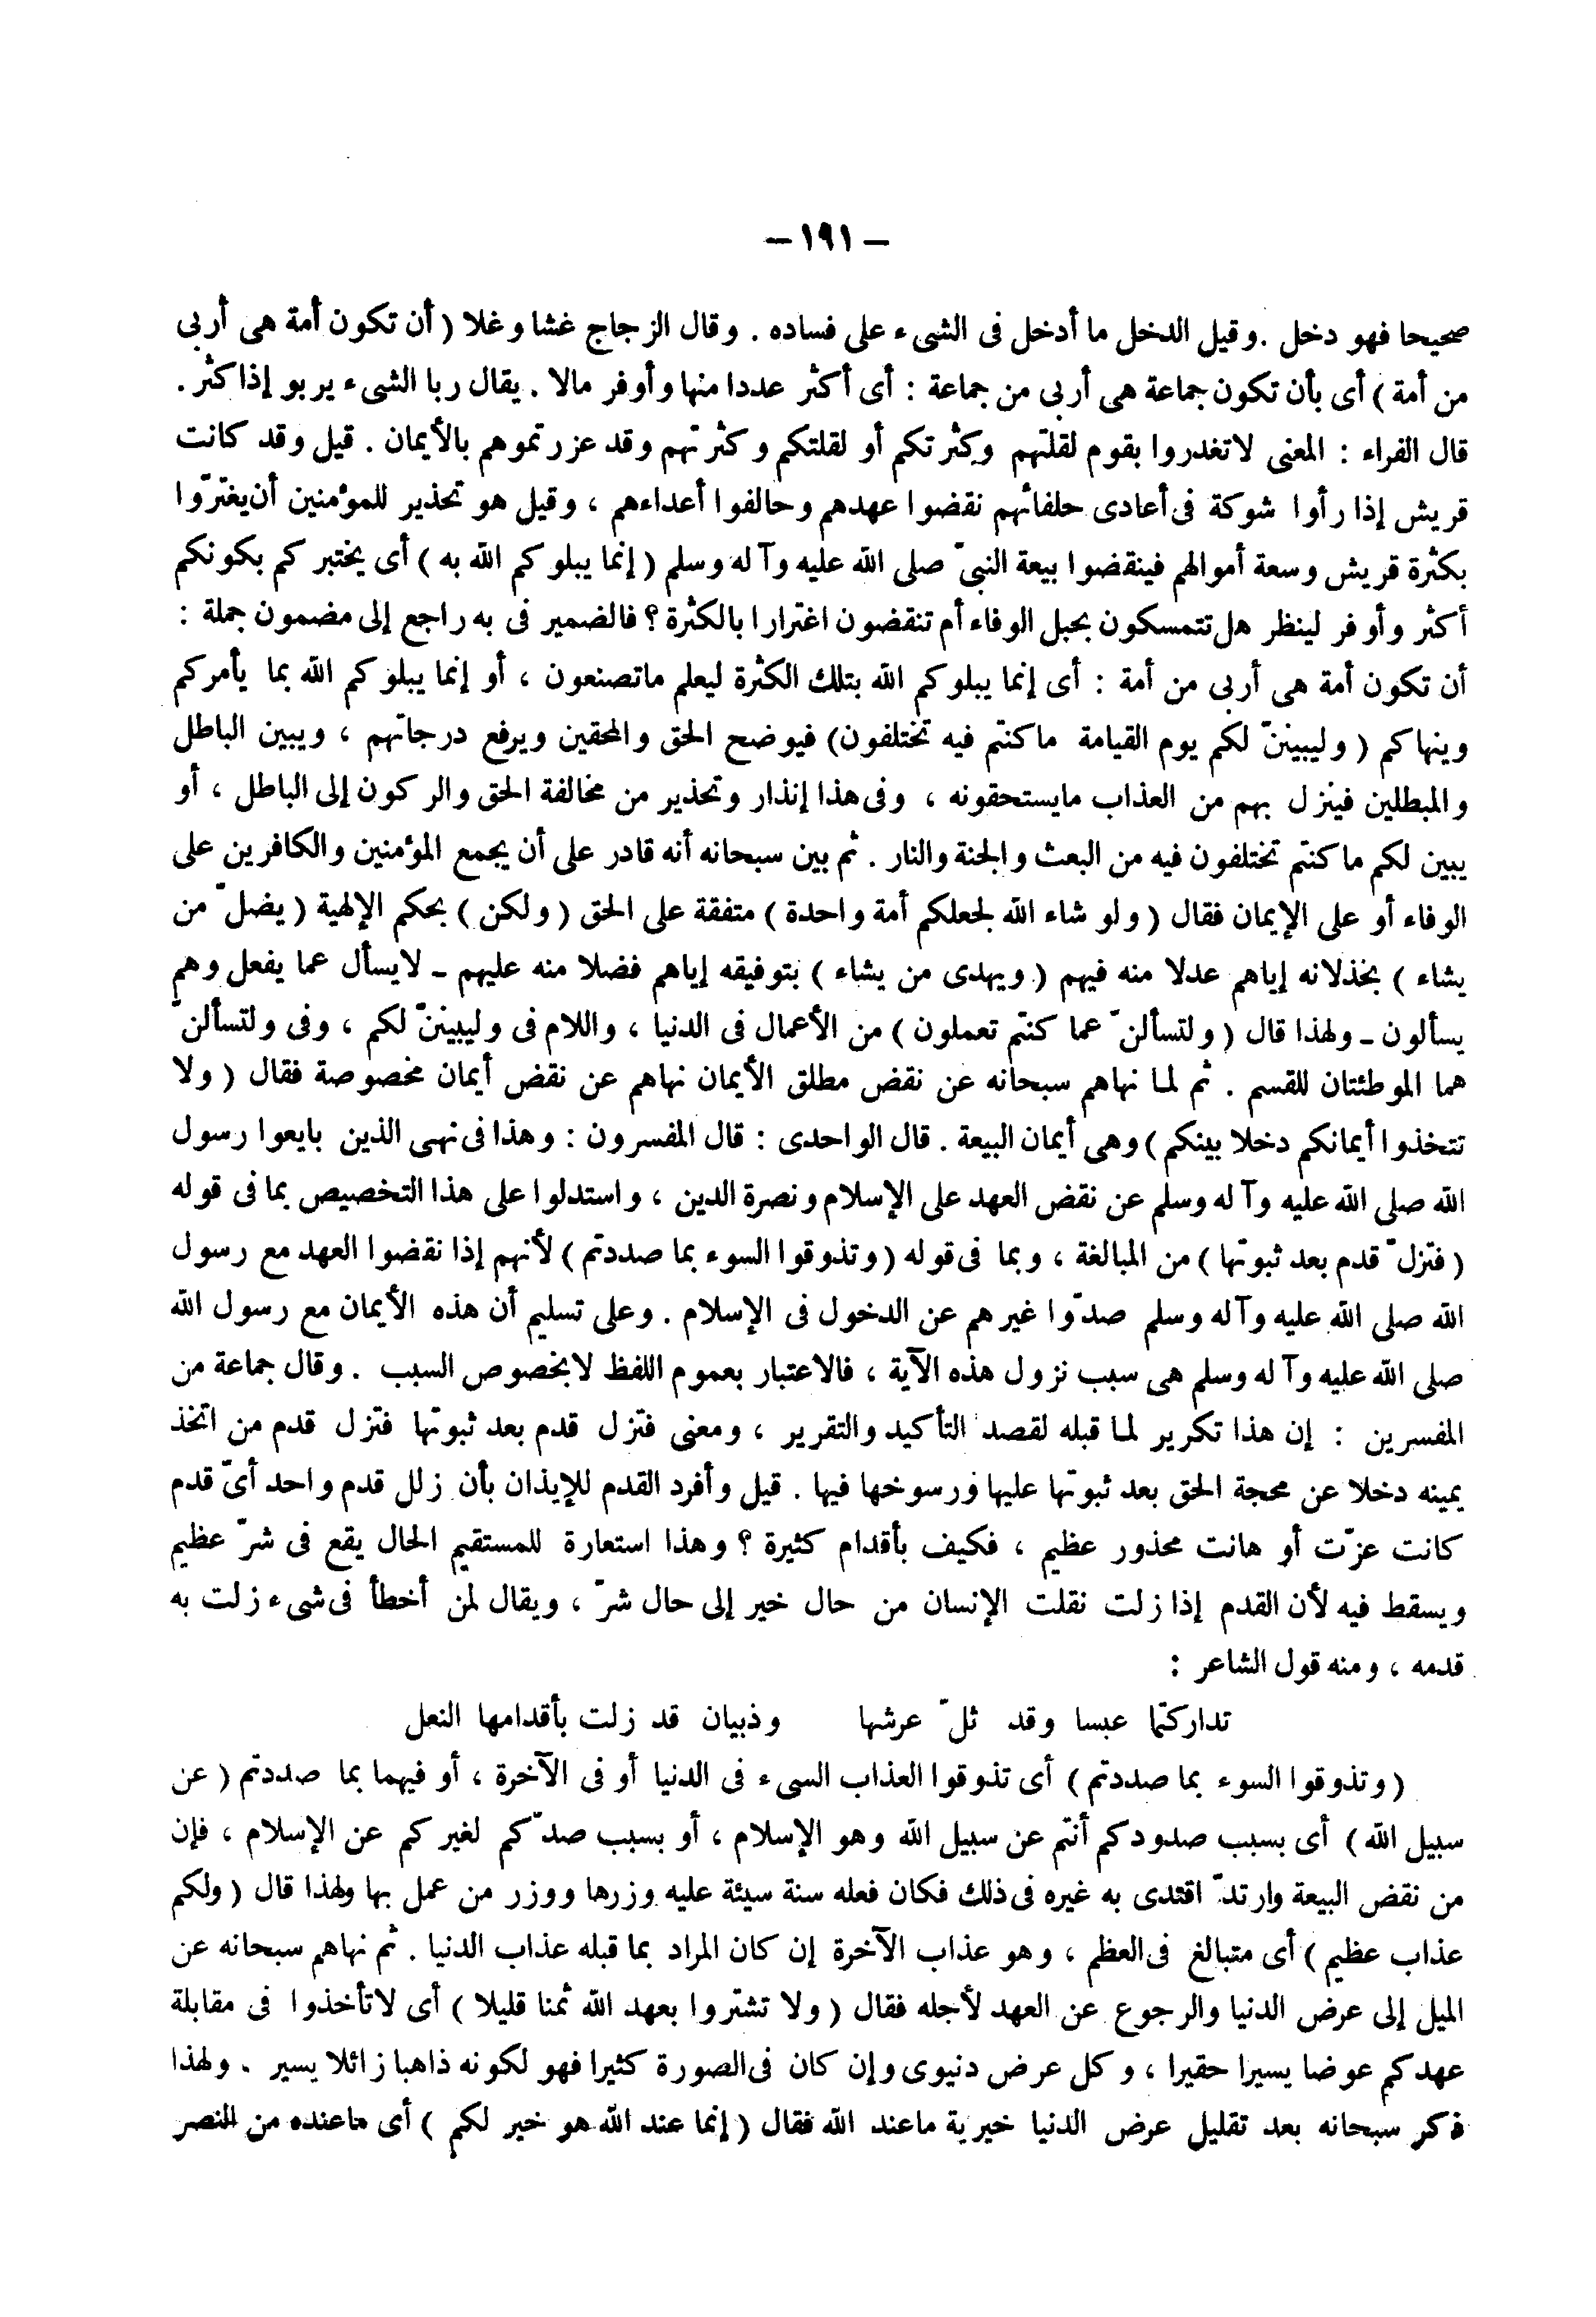 – ١٩١ –
صحيحا فهو دخل . وقيل الدخل ما أدخل فى الشىء على فساده . وقال الزجاج غشا وغلا ( أن تكون أمة هى أربى
من أمة ) أى بأن تكون جماعة هى أربى من جماعة : أى أكثر عددا منها وأوفر مالا . يقال ربا الشىء يربو إذا كثر .
قال الفراء : المعنى لا تغدروا بقوم لقلتهم وكثرتكم أو لقلتكم وكثرتهم وقد عزرتموهم بالأيمان . قيل وقد كانت
قريش إذا رأوا شوكة فى أعادى حلفائهم نقضوا عهدهم وحالفوا أعداءهم ، وقيل هو تحذير للمؤمنين أن يغترّوا
بكثرة قريش وسعة أموالهم فينقضوا بيعة النبىّ صلى الله عليه وآله وسلم ( إنما يبلوكم الله به ) أى يختبركم بكونكم
أكثر وأوفر لينظر هل تتمسكون بحبل الوفاء أم تنقضون اغترارا بالكثرة ؟ فالضمير فى به راجع إلى مضمون جملة :
أن تكون أمة هى أربى من أمة : أى إنما يبلوكم الله بتلك الكثرة ليعلم ماتصنعون ، أو إنما يبلوكم الله بما يأمركم
وينهاكم ( وليبيننّ لكم يوم القيامة ماكنتم فيه تختلفون) فيوضح الحق والمحقين ويرفع درجاتهم ، ويبين الباطل
والمبطلين فينزل بهم من العذاب مايستحقونه ، وفى هذا إنذار وتحذير من مخالفة الحق والركون إلى الباطل ، أو
يبين لكم ماكنتم تختلفون فيه من البعث والجنة والنار . ثم بين سبحانه أنه قادر على أن يجمع المؤمنين والكافرين على
الوفاء أو على الإيمان فقال ( ولو شاء الله لجعلكم أمة واحدة ) متفقة على الحق ( ولكن ) بحكم الإلهية ( يضلّ من
يشاء ) بخذلانه إياهم عدلا منه فيهم ( ويهدى من يشاء ) بتوفيقه إياهم فضلا منه عليهم ـ لايسأل عما يفعل وهم
يسألون ـ ولهذا قال ( ولتسألنّ عما كنتم تعملون ) من الأعمال فى الدنيا ، واللام فى وليبيننّ لكم ، وفى ولتسألنّ
هما الموطئتان للقسم . ثم لما نهاهم سبحانه عن نقض مطلق الأيمان نهاهم عن نقض أيمان مخصوصة فقال ( ولا
تتخذوا أيمانكم دخلا بينكم ) وهى أيمان البيعة . قال الواحدى : قال المفسرون : وهذا فى نهى الذين بايعوا رسول
الله صلى الله عليه وآله وسلم عن نقض العهد على الإسلام ونصرة الدين ، واستدلوا على هذا التخصيص بما فى قوله
( فتزلّ قدم بعد ثبوتها ) من المبالغة ، وبما فى قوله ( وتذوقوا السوء بما صددتم ) لأنهم إذا نقضوا العهد مع رسول
الله صلى الله عليه وآله وسلم صدّوا غيرهم عن الدخول فى الإسلام . وعلى تسليم أن هذه الأيمان مع رسول الله
صلى الله عليه وآله وسلم هى سبب نزول هذه الآية ، فالاعتبار بعموم اللفظ لابخصوص السبب . وقال جماعة من
المفسرين : إن هذا تكرير لما قبله لقصد التأكيد والتقرير ، ومعنى فتزل قدم بعد ثبوتها فتزل قدم من اتخذ
يمينه دخلا عن محجة الحق بعد ثبوتها عليها ورسوخها فيها . قيل وأفرد القدم للإيذان بأن زلل قدم واحد أىّ قدم
كانت عزّت أو هانت محذور عظيم ، فكيف بأقدام كثيرة ؟ وهذا استعارة للمستقيم الحال يقع فى شرّ عظيم
ويسقط فيه لأن القدم إذا زلت نقلت الإنسان من حال خير إلى حال شرّ ، ويقال لمن أخطأ فى شىء زلت به
قدمه ، ومنه قول الشاعر :
تداركتما عبسا وقد ثلّ عرشها وذبيان قد زلت بأقدامها النعل
( وتذوقوا السوء بما صددتم ) أى تذوقوا العذاب السىء فى الدنيا أو فى الآخرة ، أو فيهما بما صددتم ( عن
سبيل الله ) أى بسبب صدودكم أنتم عن سبيل الله وهو الإسلام ، أو بسبب صدّكم لغيركم عن الإسلام ، فإن
من نقض البيعة وارتدّ اقتدى به غيره فى ذلك فكان فعله سنة سيئة عليه وزرها ووزر من عمل بها ولهذا قال ( ولكم
عذاب عظيم ) أى متبالغ فى العظم ، وهو عذاب الآخرة إن كان المراد بما قبله عذاب الدنيا . ثم نهاهم سبحانه عن
الميل إلى عرض الدنيا والرجوع عن العهد لأجله فقال ( ولا تشتروا بعهد الله ثمنا قليلا ) أى لاتأخذوا فى مقابلة
عهدكم عوضا يسيرا حقيرا ، وكل عرض دنيوى وإن كان فى الصورة كثيرا فهو لكونه ذاهبا زائلا يسير . ولهذا
ذكر سبحانه بعد تقليل عرض الدنيا خيرية ماعند الله فقال ( إنما عند الله هو خير لكم ) أى ماعنده من النصر